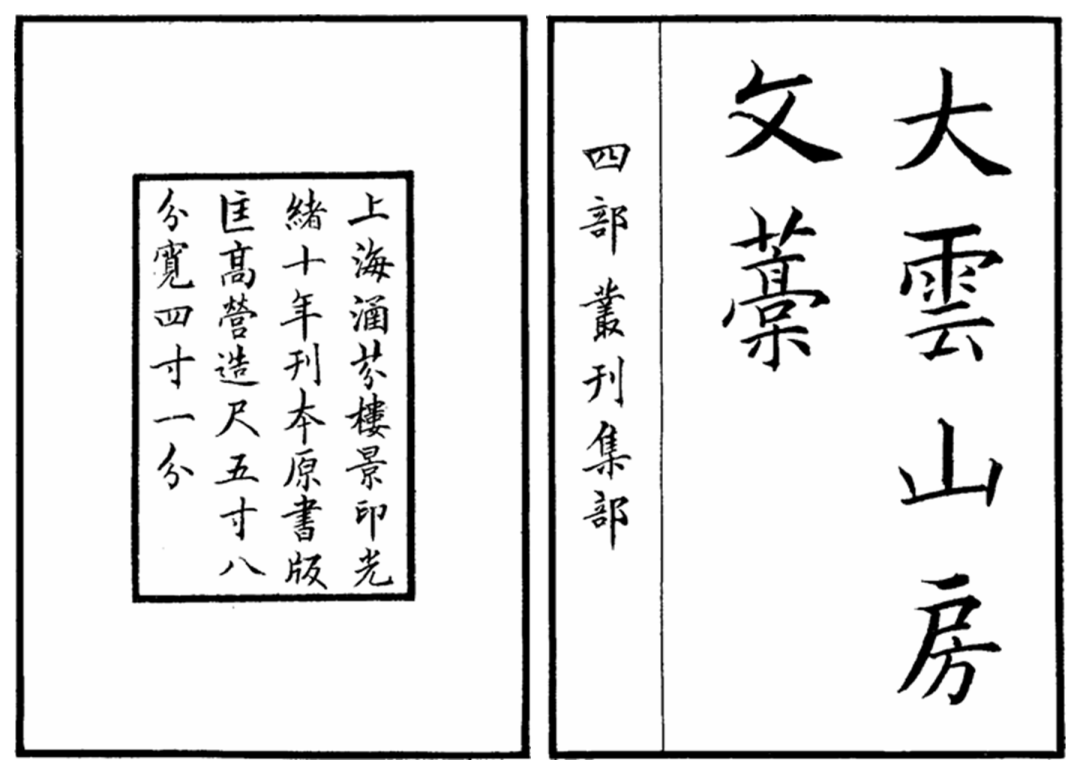 大雲山房
文藁
四部叢刊集部
上海涵芬樓景印光
緒十年刊本原書版
匡高營造尺五寸八
分寬四寸一分